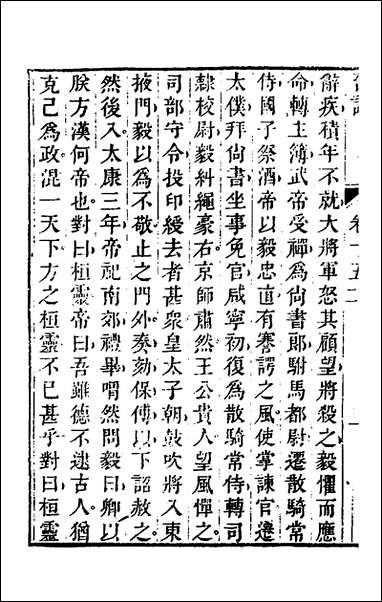 辭疾積年不就大將軍怒其顧望將殺之毅懼而應
命轉主簿武帝受禪爲尚書郎駙馬都尉遷散騎常
侍國子祭酒帝以毅忠直有謇諤之風使掌諫官遷
太僕拜尚書坐事免官咸寧初復爲散騎常侍轉司
隸校尉毅糾繩豪右京師肅然王公貴人望風憚之
司部守令投印綬去者甚衆皇太子朝鼓吹將入東
掖門毅以爲不敬止之門外奏劾保傅以下詔赦之
然後入太康三年帝祀南郊禮畢喟然問毅曰卿以
朕方漢何帝也對曰桓靈帝曰吾雖德不逮古人猶
克己爲政混一天下方之桓靈不已甚乎對曰桓靈
卷十五
二